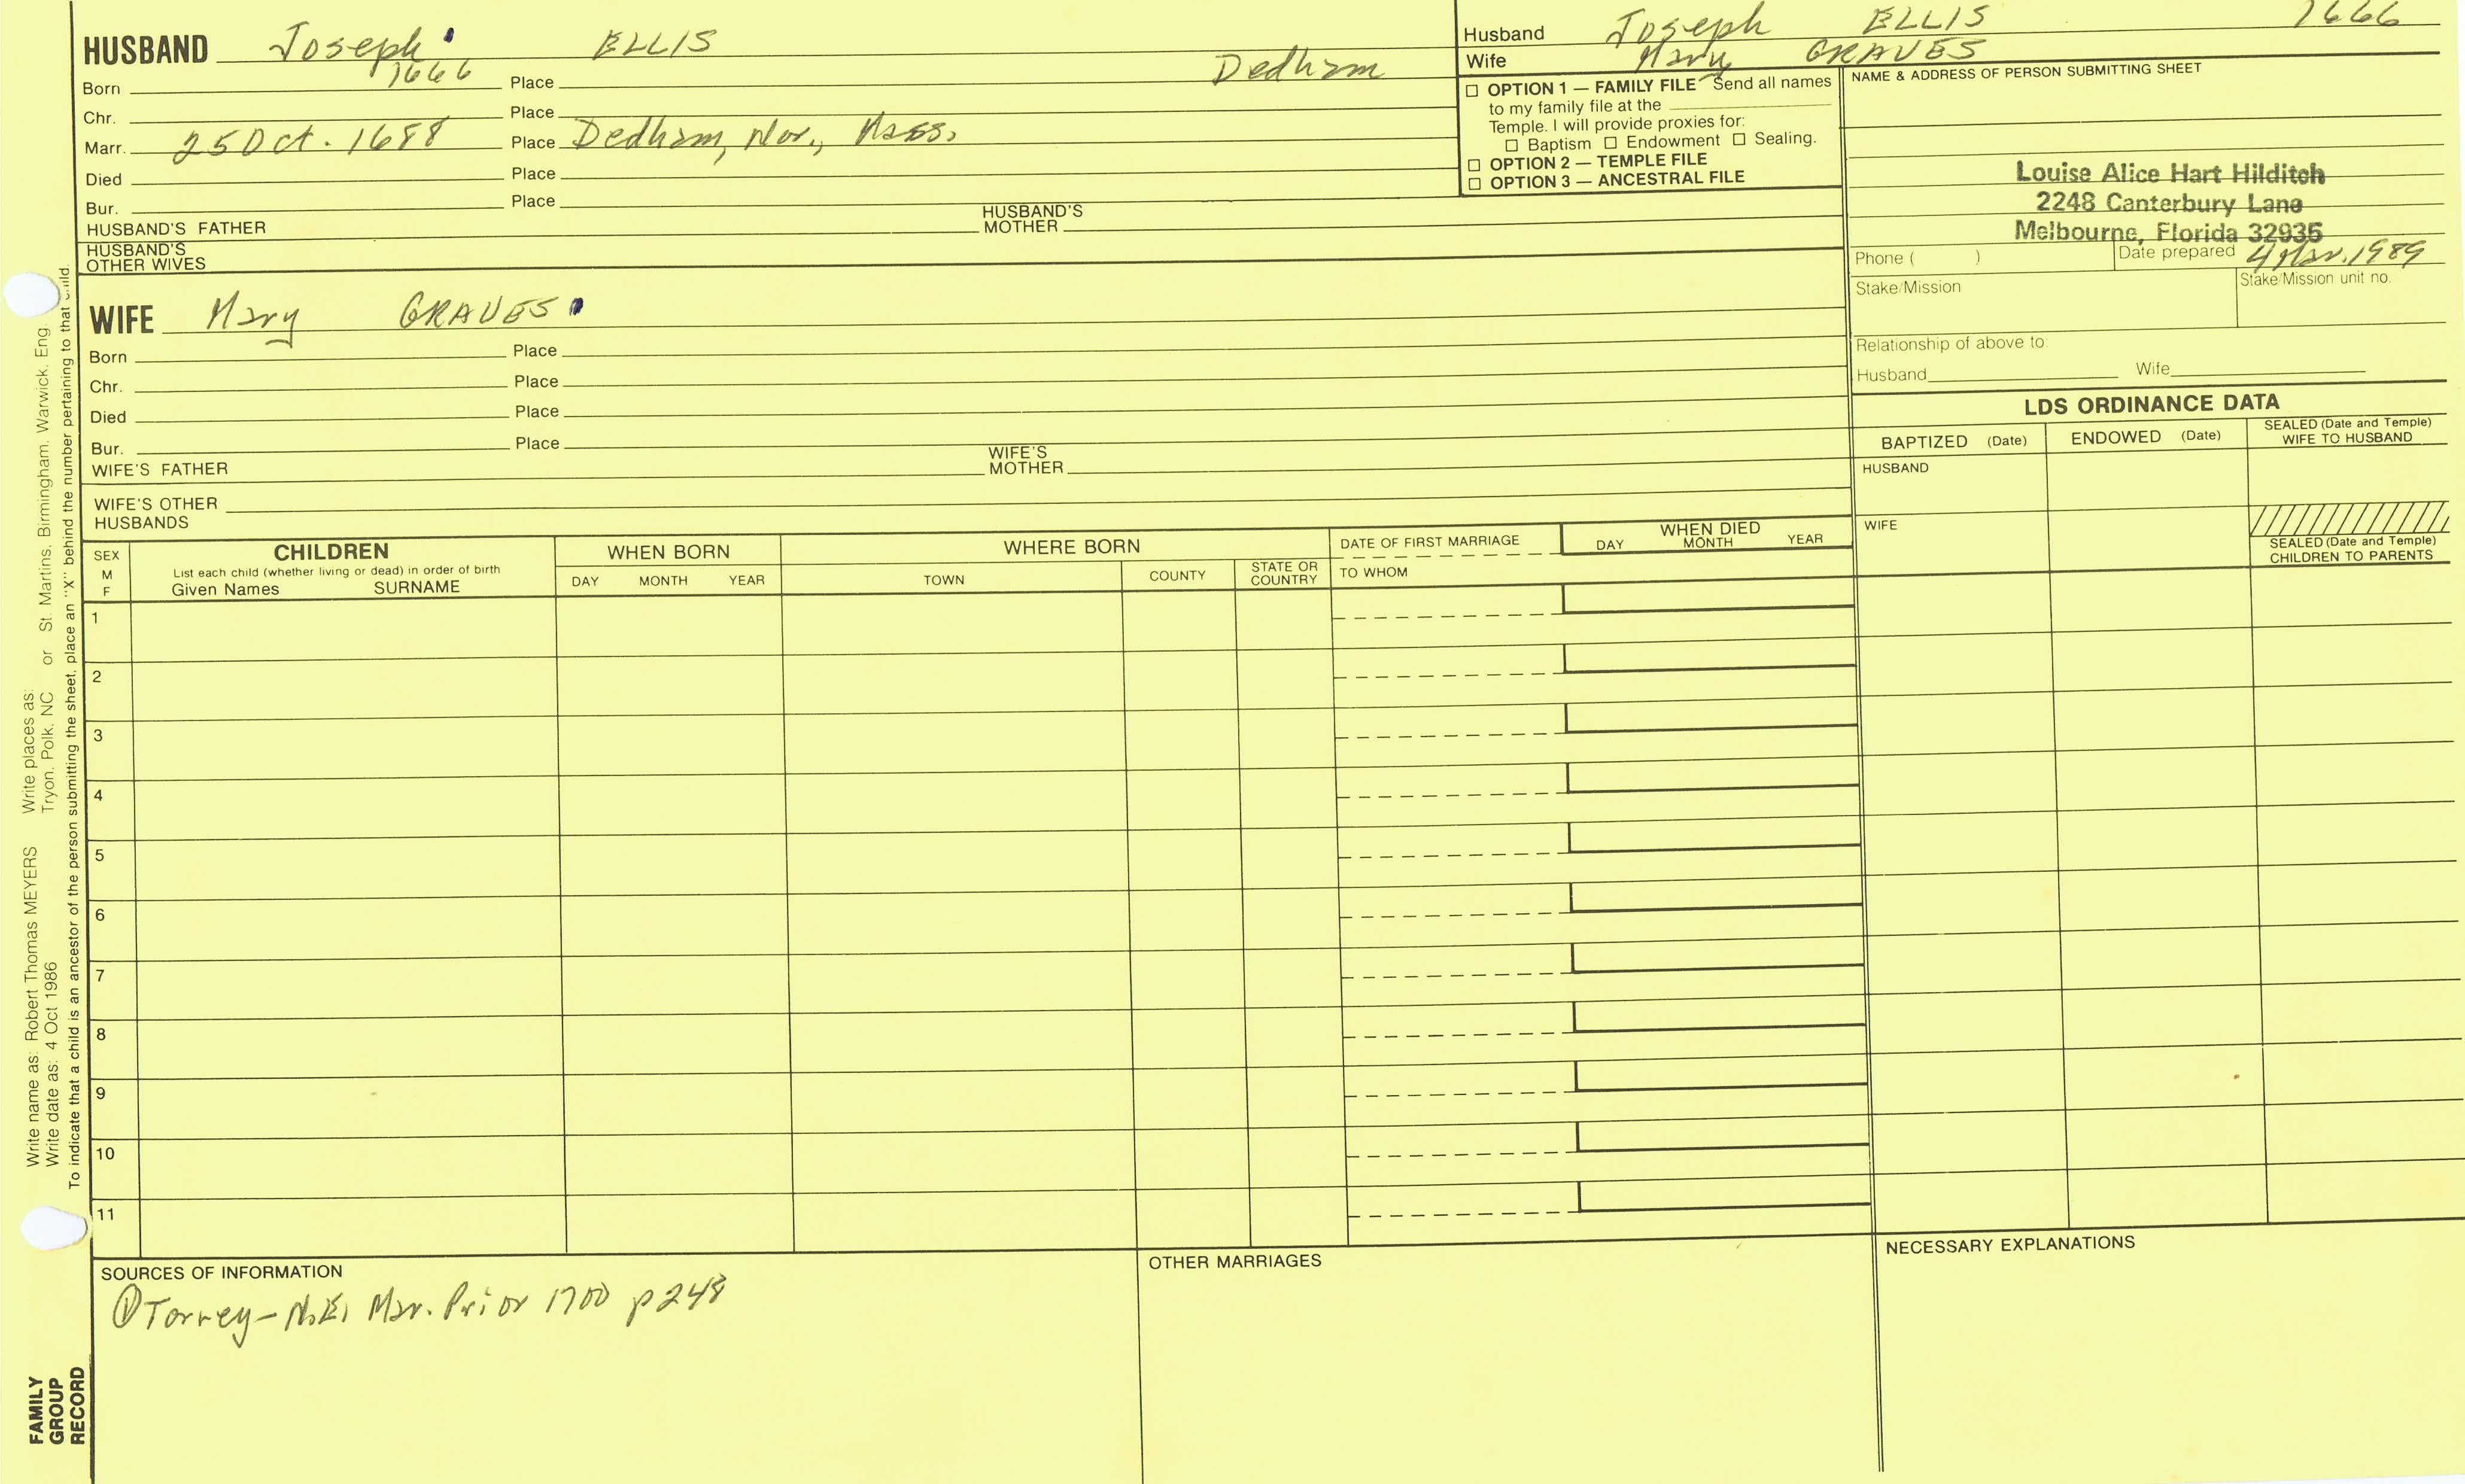 HUSBAND Joseph ELLIS
Born 1666 Place Dedham
Chr. Place
Marr. 25 Oct. 1688 Place Dedham, Nor., Mass.
Died Place
Bur. Place
HUSBAND'S FATHER HUSBAND'S MOTHER
HUSBAND'S OTHER WIVES
Husband Joseph ELLIS 1666
Wife Mary GRAVES
☐ OPTION 1 — FAMILY FILE Send all names
to my family file at the
Temple. I will provide proxies for:
☐ Baptism ☐ Endowment ☐ Sealing.
☐ OPTION 2 — TEMPLE FILE
☐ OPTION 3 — ANCESTRAL FILE
NAME & ADDRESS OF PERSON SUBMITTING SHEET
Louise Alice Hart Hilditch
2248 Canterbury Lane
Melbourne, Florida 32935
Phone ( ) Date prepared 4 Mar. 1989
Stake/Mission Stake/Mission unit no.
Relationship of above to:
Husband Wife
WIFE Mary GRAVES
Born Place
Chr. Place
Died Place
Bur. Place
WIFE'S FATHER WIFE'S MOTHER
WIFE'S OTHER
HUSBANDS
LDS ORDINANCE DATA
BAPTIZED (Date) ENDOWED (Date) SEALED (Date and Temple) WIFE TO HUSBAND
HUSBAND
WIFE
SEALED (Date and Temple)
CHILDREN TO PARENTS
SEX
M
F
CHILDREN
List each child (whether living or dead) in order of birth
Given Names SURNAME
WHEN BORN
DAY MONTH YEAR
WHERE BORN
TOWN COUNTY STATE OR COUNTRY
DATE OF FIRST MARRIAGE
TO WHOM
WHEN DIED
DAY MONTH YEAR
1
2
3
4
5
6
7
8
9
10
11
SOURCES OF INFORMATION
① Torrey - N.E. Mar. Prior 1700 p 248
OTHER MARRIAGES
NECESSARY EXPLANATIONS
Write name as: Robert Thomas MEYERS Write places as:
Write date as: 4 Oct 1986 Tryon, Polk, NC or St. Martins, Birmingham, Warwick, Eng.
To indicate that a child is an ancestor of the person submitting the sheet, place an "X" behind the number pertaining to that child.
FAMILY
GROUP
RECORD